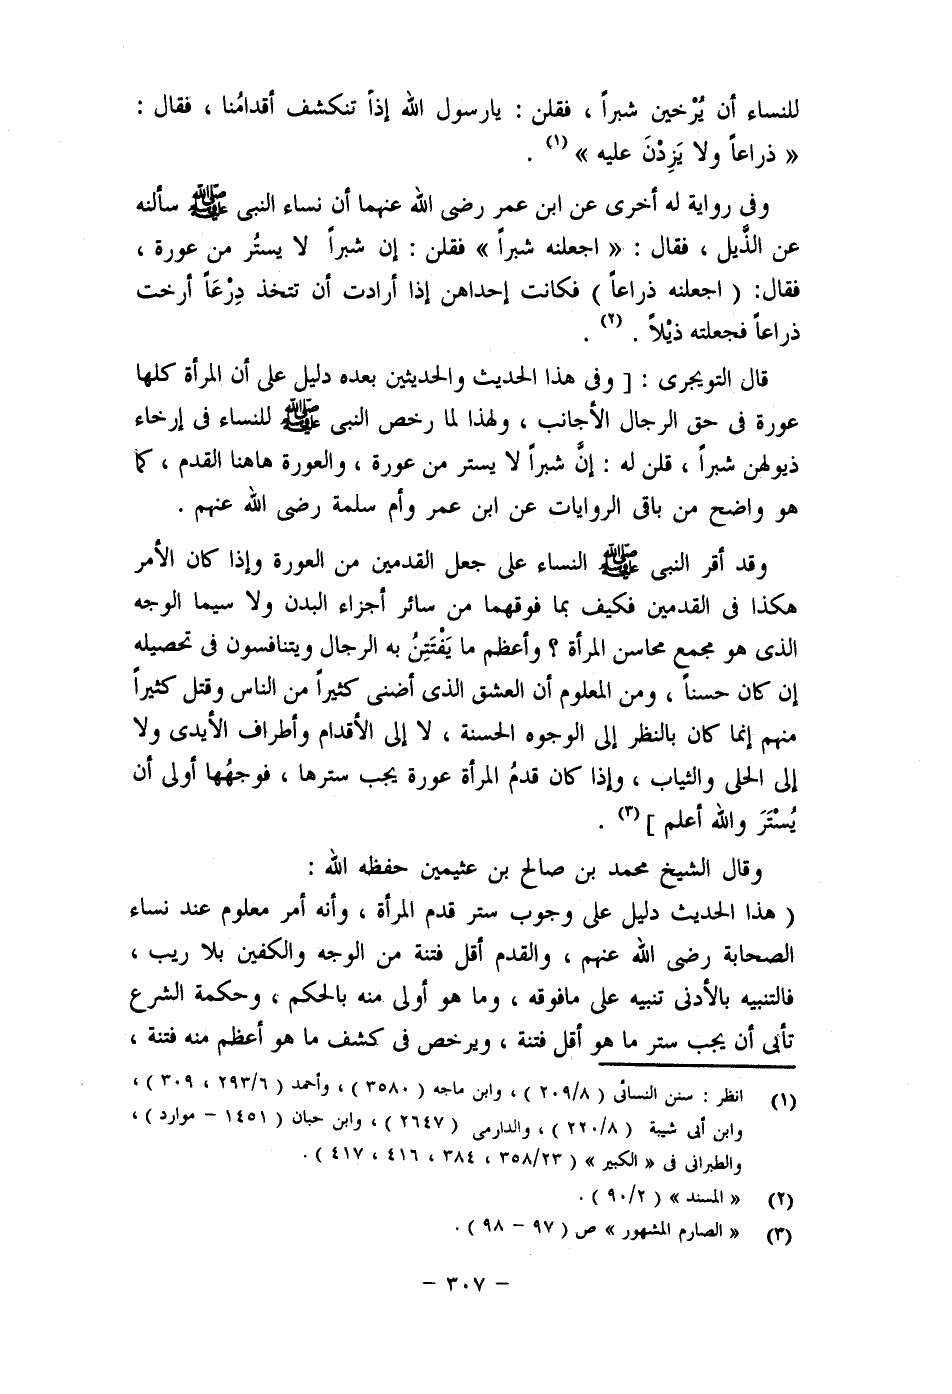 للنساء أن يُرْخين شبراً ، فقلن : يارسول الله إذاً تنكشف أقدامُنا ، فقال :
« ذراعاً ولا يَزِدْنَ عليه » (١) .
وفى رواية له أخرى عن ابن عمر رضى الله عنهما أن نساء النبى ﷺ سألنه
عن الذَّيل ، فقال : « اجعلنه شبراً » فقلن : إن شبراً لا يستُر من عورة ،
فقال: ( اجعلنه ذراعاً ) فكانت إحداهن إذا أرادت أن تتخذ دِرْعَاً أرخت
ذراعاً فجعلته ذيْلاً . (٢) .
قال التويجرى : [ وفى هذا الحديث والحديثين بعده دليل على أن المرأة كلها
عورة فى حق الرجال الأجانب ، ولهذا لما رخص النبى ﷺ للنساء فى إرخاء
ذيولهن شبراً ، قلن له : إنَّ شبراً لا يستر من عورة ، والعورة هاهنا القدم ، كما
هو واضح من باقى الروايات عن ابن عمر وأم سلمة رضى الله عنهم .
وقد أقر النبى ﷺ النساء على جعل القدمين من العورة وإذا كان الأمر
هكذا فى القدمين فكيف بما فوقهما من سائر أجزاء البدن ولا سيما الوجه
الذى هو مجمع محاسن المرأة ؟ وأعظم ما يَفْتَتِنُ به الرجال ويتنافسون فى تحصيله
إن كان حسناً ، ومن المعلوم أن العشق الذى أضنى كثيراً من الناس وقتل كثيراً
منهم إنما كان بالنظر إلى الوجوه الحسنة ، لا إلى الأقدام وأطراف الأيدى ولا
إلى الحلى والثياب ، وإذا كان قدمُ المرأة عورة يجب سترها ، فوجهُها أولى أن
يُسْتَرَ والله أعلم ] (٣) .
وقال الشيخ محمد بن صالح بن عثيمين حفظه الله :
( هذا الحديث دليل على وجوب ستر قدم المرأة ، وأنه أمر معلوم عند نساء
الصحابة رضى الله عنهم ، والقدم أقل فتنة من الوجه والكفين بلا ريب ،
فالتنبيه بالأدنى تنبيه على مافوقه ، وما هو أولى منه بالحكم ، وحكمة الشرع
تأبى أن يجب ستر ما هو أقل فتنة ، ويرخص فى كشف ما هو أعظم منه فتنة ،
(١) انظر : سنن النسائى ( ٢٠٩/٨ ) ، وابن ماجه ( ٣٥٨٠ ) ، وأحمد ( ٢٩٣/٦ ، ٣٠٩ ) ،
وابن أبى شيبة ( ٢٢٠/٨ ) ، والدارمى ( ٢٦٤٧ ) ، وابن حبان ( ١٤٥١ - موارد ) ،
والطبرانى فى « الكبير » ( ٣٥٨/٢٣ ، ٣٨٤ ، ٤١٦ ، ٤١٧ ) .
(٢) « المسند » ( ٩٠/٢ ) .
(٣) « الصارم المشهور » ص ( ٩٧ - ٩٨ ) .
- ٣٠٧ -